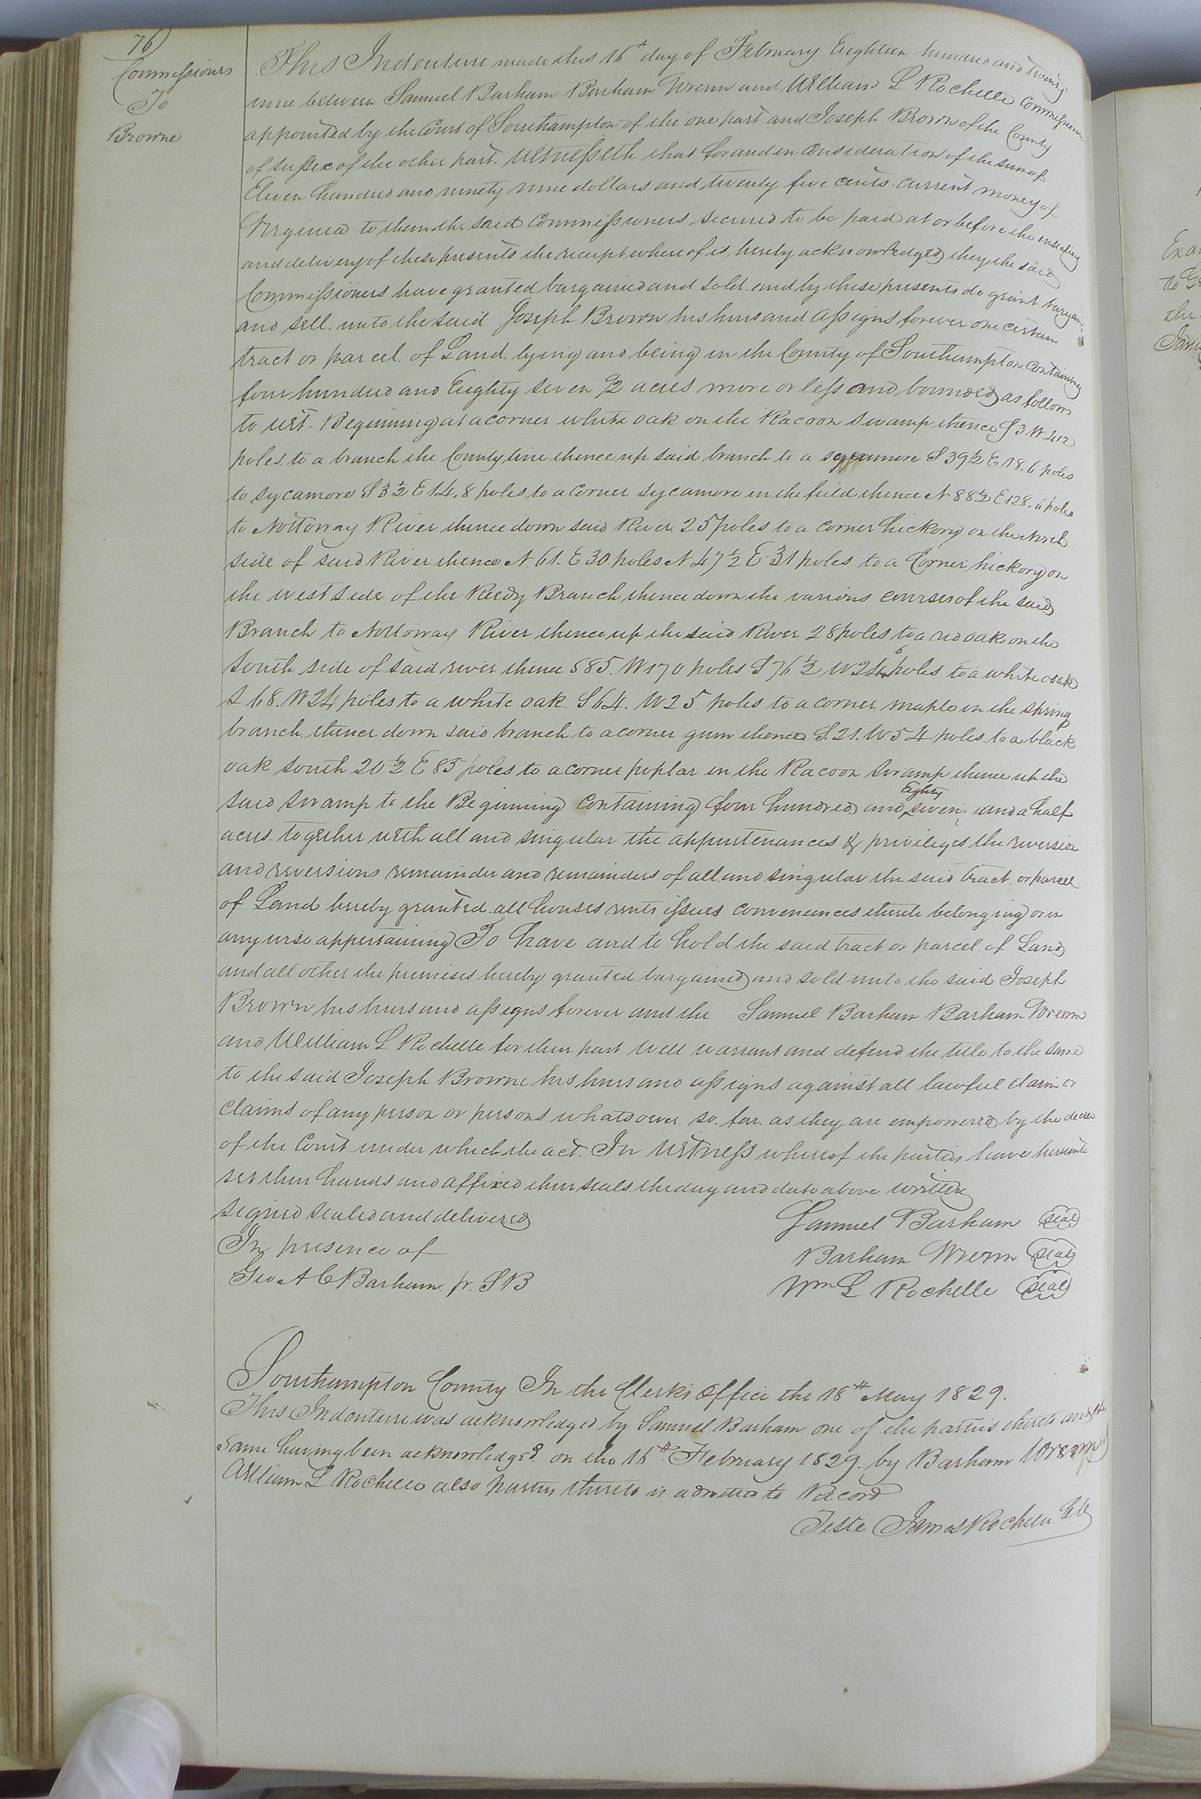 76
Commissioners
To
Browne
This Indenture made this 16th day of February Eighteen hundred and twenty
nine between Samuel Barham Barham Wrenn and William L Rochelle Commissioners
appointed by the Court of Southampton of the one part and Joseph Brown of the County
of Sussex of the other part. Witnesseth that for and in consideration of the sum of
Eleven hundred and ninety nine dollars and twenty five cents current money of
Virginia to them the said Commissioners secured to be paid at or before the ensealing
and delivery of these presents the receipt whereof is hereby acknowledged they the said
Commissioners have granted bargained and sold and by these presents do grant bargain
and sell unto the said Joseph Brown his heirs and assigns forever one certain
tract or parcel of Land lying and being in the County of Southampton containing
four hundred and Eighty seven 1/2 acres more or less and bounded as follows
to wit. Beginning at a corner white oak on the Racoon Swamp thence S 3 W 212
poles to a branch the County line thence up said branch to a sycamore S 39½ E 18.6 poles
to sycamore S 3½ E 14.8 poles to a corner sycamore in the field thence N 88½ E 128.6 poles
to Nottoway River thence down said River 25 poles to a corner hickory on the North
side of said River thence N 61. E 30 poles N 47½ E 31 poles to a Corner hickory on
the west side of the Reedy Branch thence down the various courses of the said
Branch to Nottoway River thence up the said River 28 poles to a red oak on the
South side of said river thence S 85. W 170 poles S 76½ W 24 poles to a white oak
S 68. W 24 poles to a white oak S 64. W 25 poles to a corner maple in the spring
branch thence down said branch to a corner gum thence S. 21. W 54 poles to a black
oak South 20½ E 85 poles to a corner poplar in the Racoon Swamp thence up the
Eighty
said swamp to the Beginning containing four hundred and seven and a half
acres. together with all and singular the appurtenances & privileges the reversion
and reversions remainder and remainders of all and singular the said tract or parcel
of Land hereby granted all houses rents issues conveniences thereto belonging or in
any wise appertaining To have and to hold the said tract or parcel of Land
and all other the premises hereby granted bargained and sold unto the said Joseph
Brown his heirs and assigns forever and the Samuel Barham Barham Wrenn
and William L Rochelle for their part will warrant and defend the title to the same
to the said Joseph Browne his heirs and assigns against all lawful claim or
claims of any person or persons whatsoever so far as they are empowered by the decree
of the Court under which the act. In Witness whereof the parties have hereunto
set their hands and affixed their seals the day and date above written
Signed sealed and delivered
In presence of
Geo A C Barham pr. S B
Samuel Barham seal
Barham Wrenn seal
Wm L Rochelle seal
Southampton County In the Clerks Office the 18th May 1829.
This Indenture was acknowledged by Samuel Barham one of the parties thereto and the
same having been acknowledged on the 16th February 1829. by Barham Wrenn &
William L Rochelle also parties thereto is admitted to Record
Teste James Rochelle Clk